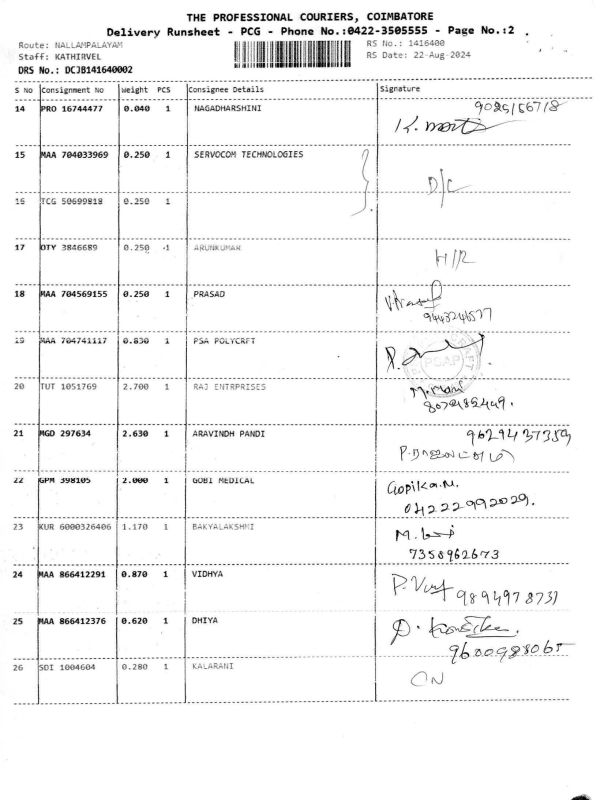 THE PROFESSIONAL COURIERS, COIMBATORE
Delivery Runsheet - PCG - Phone No.:0422-3505555 - Page No.:2
Route: NALLAMPALAYAM RS No.: 1416400
Staff: KATHIRVEL RS Date: 22-Aug-2024
DRS No.: DCJB141640002
S No Consignment No Weight PCS Consignee Details Signature
14 PRO 16744477 0.040 1 NAGADHARSHINI
15 MAA 704033969 0.250 1 SERVOCOM TECHNOLOGIES
D/C
16 TCG 50699818 0.250 1
17 OTY 3846689 0.250 1 ARUNKUMAR
18 MAA 704569155 0.250 1 PRASAD
19 MAA 704741117 0.830 1 PSA POLYCRFT
20 TUT 1051769 2.700 1 RAJ ENTRPRISES M. Mani
21 MGD 297634 2.630 1 ARAVINDH PANDI
22 GPM 398105 2.000 1 GOBI MEDICAL Gopika.M.
04222992029.
23 KUR 6000326406 1.170 1 BAKYALAKSHMI
7358962673
24 MAA 866412291 0.870 1 VIDHYA
9894978731
25 MAA 866412376 0.620 1 DHIYA
9600988065
26 SDI 1004604 0.280 1 KALARANI